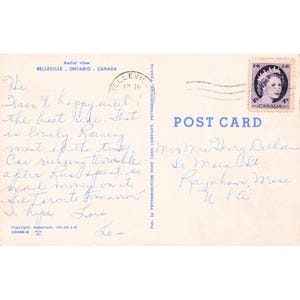 Aerial view
BELLEVILLE - ONTARIO - CANADA
BELLEVIL
CANADA
POST CARD
Hi,
happy until
the boat ride. That
is lovely. Raining
most of the time.
Car running terrible
after Russ spent so
much money on it.
See Toronto tomorrow
I hope. Love
Lo-
Mr & Mrs
So Main St.
Mass
U S A
Pub. by PETERBOROUGH POST CARD COMPANY, PETERBOROUGH, CANADA